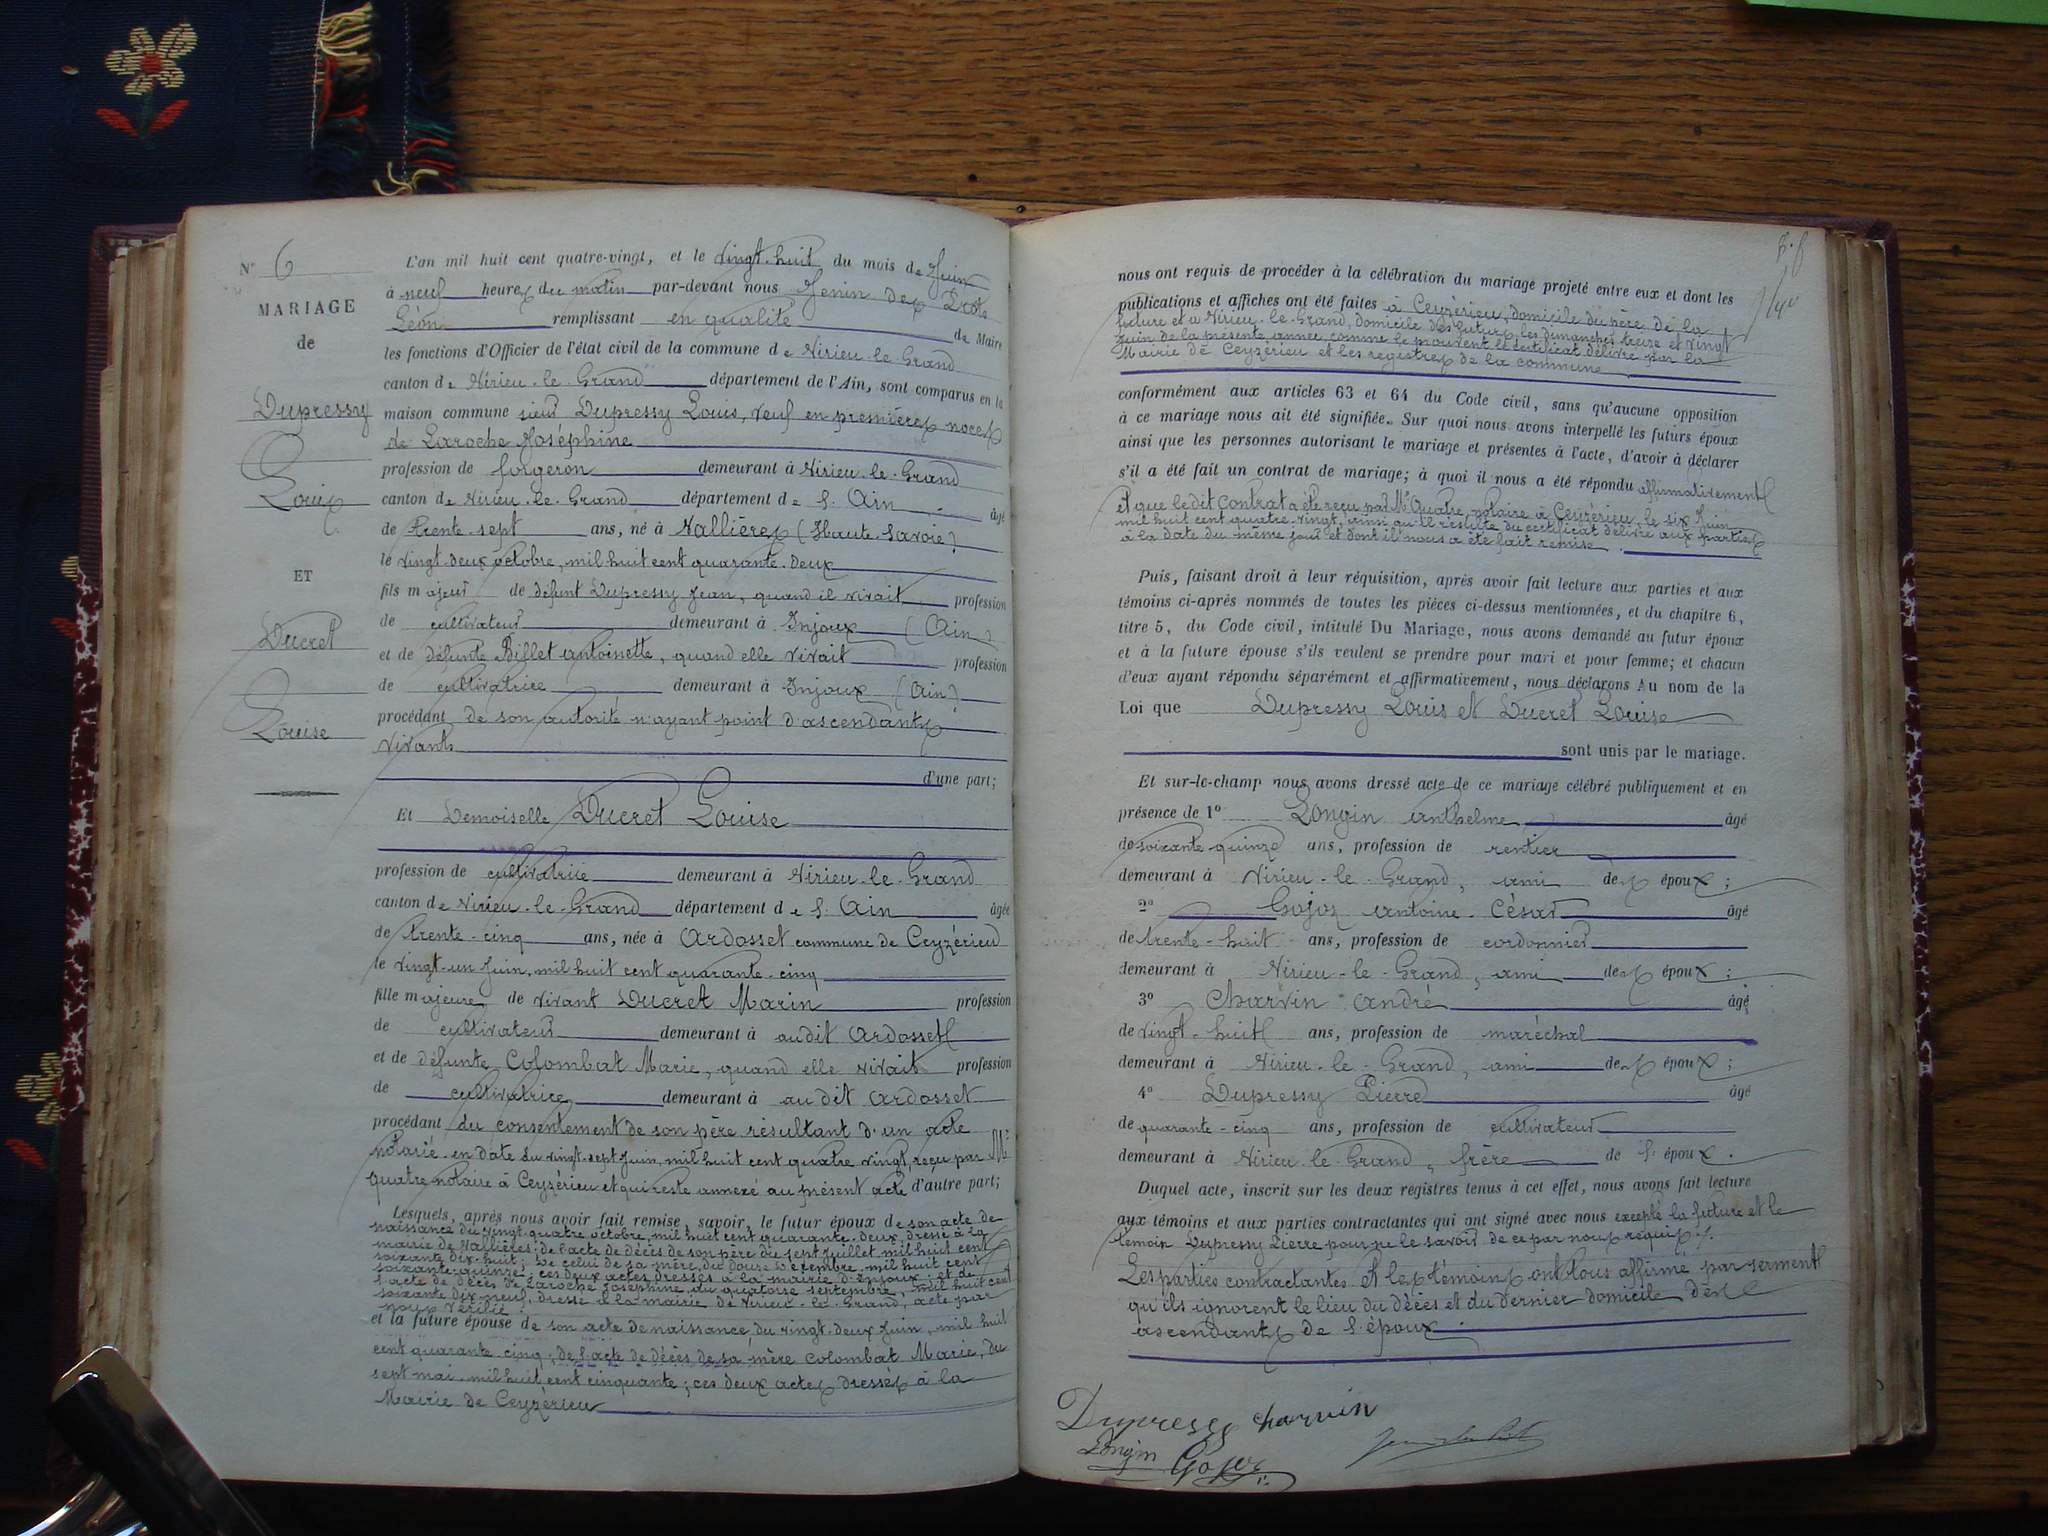 N° 6
MARIAGE
de
Dupressy
Louis
ET
Ducret
Louise
L'an mil huit cent quatre-vingt, et le vingt-huit du mois de Juin
à neuf heures du matin par-devant nous Jenin des
Léon remplissant en qualité de Maire
les fonctions d'Officier de l'état civil de la commune de Virieu-le-Grand
canton de Virieu-le-Grand département de l'Ain, sont comparus en la
maison commune sieur Dupressy Louis, veuf en premières noces
de Laroche Joséphine
profession de forgeron demeurant à Virieu-le-Grand
canton de Virieu-le-Grand département de l'Ain âgé
de trente-sept ans, né à Vallières (Haute-Savoie)
le vingt-deux octobre, mil huit cent quarante-deux
fils majeur de défunt Dupressy Jean, quand il vivait profession
de cultivateur demeurant à Injoux (Ain)
et de défunte Billet Antoinette, quand elle vivait profession
de cultivatrice demeurant à Injoux (Ain)
procédant de son autorité n'ayant point d'ascendants
vivants
d'une part;
Et Demoiselle Ducret Louise
profession de cultivatrice demeurant à Virieu-le-Grand
canton de Virieu-le-Grand département de l'Ain âgée
de trente-cinq ans, née à Ardosset commune de Ceyzérieu
le vingt-un Juin, mil huit cent quarante-cinq
fille majeure de vivant Ducret Marin profession
de cultivateur demeurant à audit Ardosset
et de défunte Colombat Marie, quand elle vivait profession
de cultivatrice demeurant à au dit Ardosset
procédant du consentement de son père résultant d'un acte
notarié en date du vingt-sept Juin, mil huit cent quatre vingt, reçu par Me
Quatre notaire à Ceyzérieu et qui reste annexé au présent acte d'autre part;
Lesquels, après nous avoir fait remise, savoir, le futur époux de son acte de
naissance du vingt-quatre octobre, mil huit cent quarante-deux, dressé à la
mairie de Vallières; de l'acte de décès de son père du sept Juillet mil huit cent
soixante-dix-huit; de celui de sa mère, du douze décembre mil huit cent
soixante-quinze; ces deux actes dressés à la mairie d'Injoux; et de
l'acte de décès de Laroche Joséphine, du quatorze septembre, mil huit cent
soixante dix-neuf, dressé à la mairie de Virieu-le-Grand, acte par
nous vérifié.
et la future épouse de son acte de naissance, du vingt-deux Juin, mil huit
cent quarante-cinq; de l'acte de décès de sa mère Colombat Marie, du
sept mai, mil huit cent cinquante; ces deux actes dressés à la
Mairie de Ceyzérieu
nous ont requis de procéder à la célébration du mariage projeté entre eux et dont les
publications et affiches ont été faites à Ceyzérieu, domicile du père de la
future et à Virieu-le-Grand, domicile des futurs, les dimanches treize et vingt
Juin de la présente année, comme le prouvent le certificat délivré par la
Mairie de Ceyzérieu et les registres de la commune
conformément aux articles 63 et 64 du Code civil, sans qu'aucune opposition
à ce mariage nous ait été signifiée. Sur quoi nous avons interpellé les futurs époux
ainsi que les personnes autorisant le mariage et présentes à l'acte, d'avoir à déclarer
s'il a été fait un contrat de mariage; à quoi il nous a été répondu affirmativement
et que le dit contrat a été reçu par Me Quatre, notaire à Ceyzérieu le six Juin
mil huit cent quatre-vingt, ainsi qu'il résulte du certificat délivré aux parties
à la date du même jour et dont il nous a été fait remise.
Puis, faisant droit à leur réquisition, après avoir fait lecture aux parties et aux
témoins ci-après nommés de toutes les pièces ci-dessus mentionnées, et du chapitre 6,
titre 5, du Code civil, intitulé Du Mariage, nous avons demandé au futur époux
et à la future épouse s'ils veulent se prendre pour mari et pour femme; et chacun
d'eux ayant répondu séparément et affirmativement, nous déclarons Au nom de la
Loi que Dupressy Louis et Ducret Louise
sont unis par le mariage.
Et sur-le-champ nous avons dressé acte de ce mariage célébré publiquement et en
présence de 1° Longin Anthelme âgé
de soixante-quinze ans, profession de rentier
demeurant à Virieu-le-Grand, ami des époux;
2° Gojoz Antoine-César âgé
de trente-huit ans, profession de cordonnier
demeurant à Virieu-le-Grand, ami des époux;
3° Charvin André âgé
de vingt-huit ans, profession de maréchal
demeurant à Virieu-le-Grand, ami des époux;
4° Dupressy Pierre âgé
de quarante-cinq ans, profession de cultivateur
demeurant à Virieu-le-Grand, frère de l'époux.
Duquel acte, inscrit sur les deux registres tenus à cet effet, nous avons fait lecture
aux témoins et aux parties contractantes qui ont signé avec nous excepté la future et le
témoin Dupressy Pierre pour ne le savoir de ce par nous requis ./.
Les parties contractantes et les témoins ont tous affirmé par serment
qu'ils ignorent le lieu du décès et du dernier domicile des
ascendants de l'époux.
Dupressy Charvin
Longin Gojoz